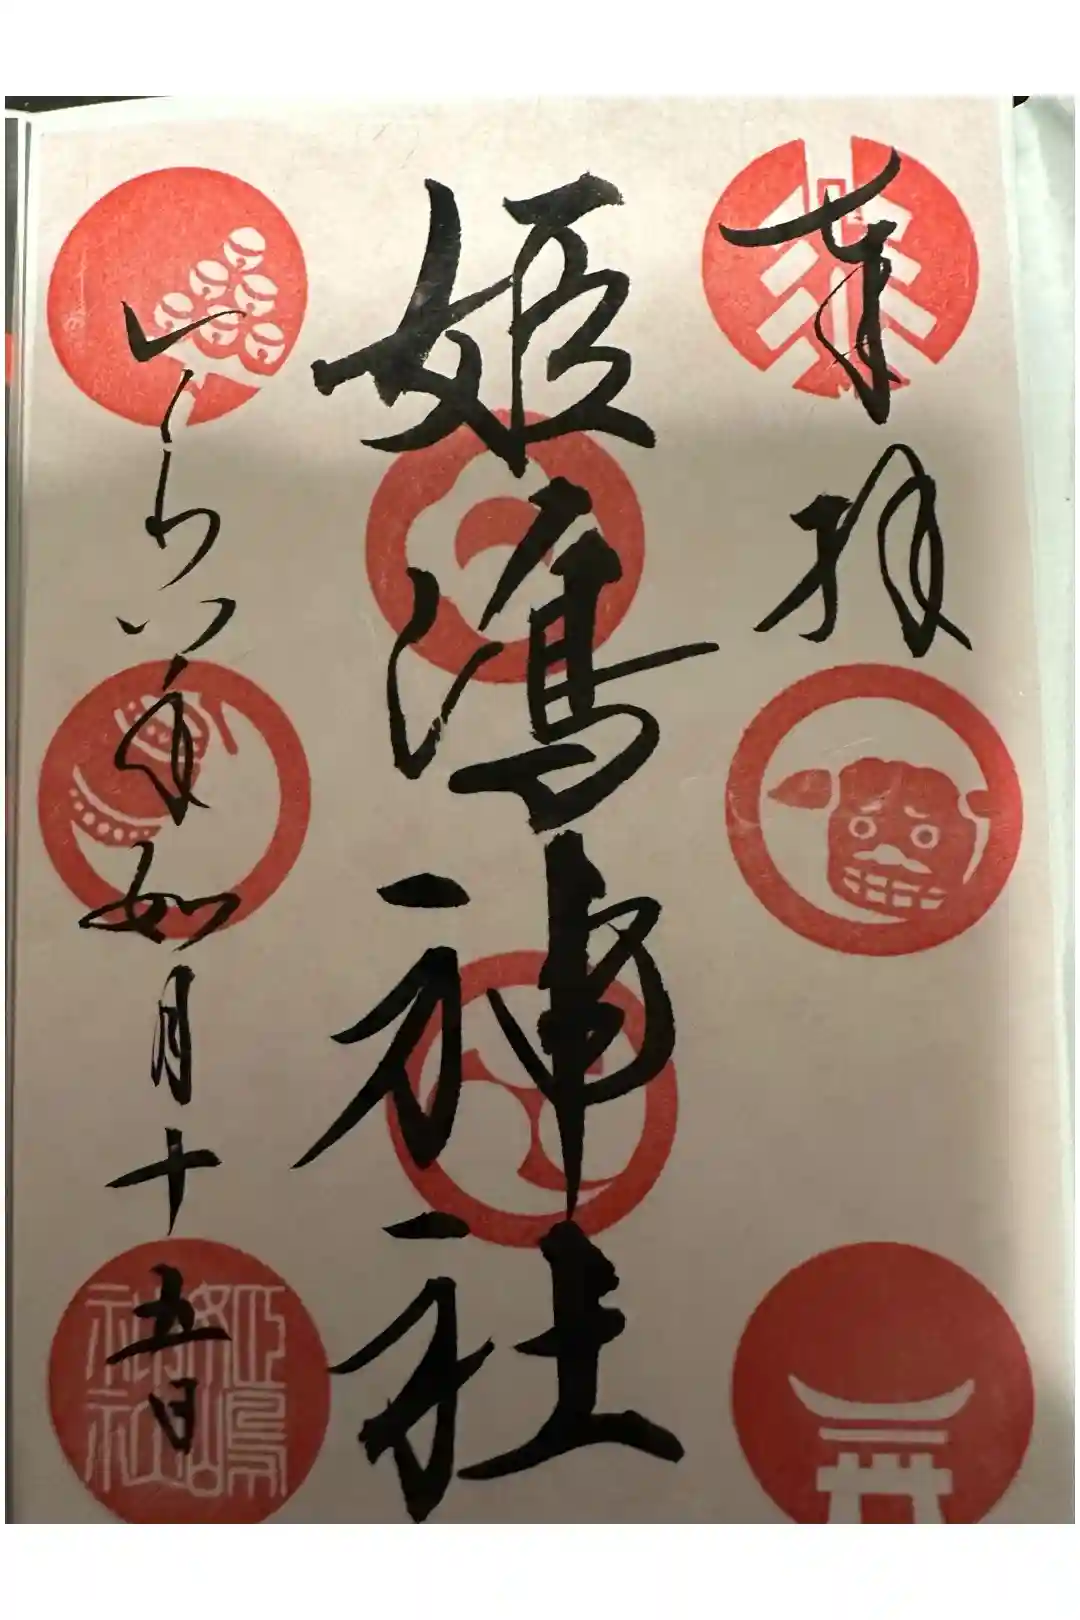 奉拝
姫嶋神社
令和八年如月十五日
姫嶋
神社